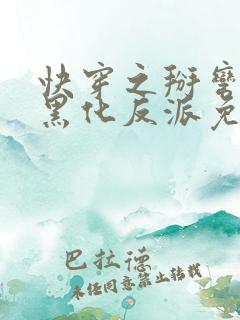 快穿之掰弯
黑化反派免
巴拉德
未经同意禁止转载